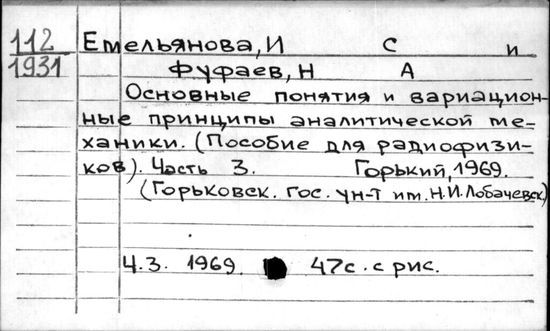 112 Емельянова, И С и
1931 Фуфаев, Н А
Основные понятия и вариацион-
ные принципы аналитической ме-
ханики. (Пособие для радиофизи-
ков). Часть 3. Горький, 1969.
(Горьковск. гос. ун-т им. Н.И. Лобачевск)
Ч.3. 1969. 47с. с рис.